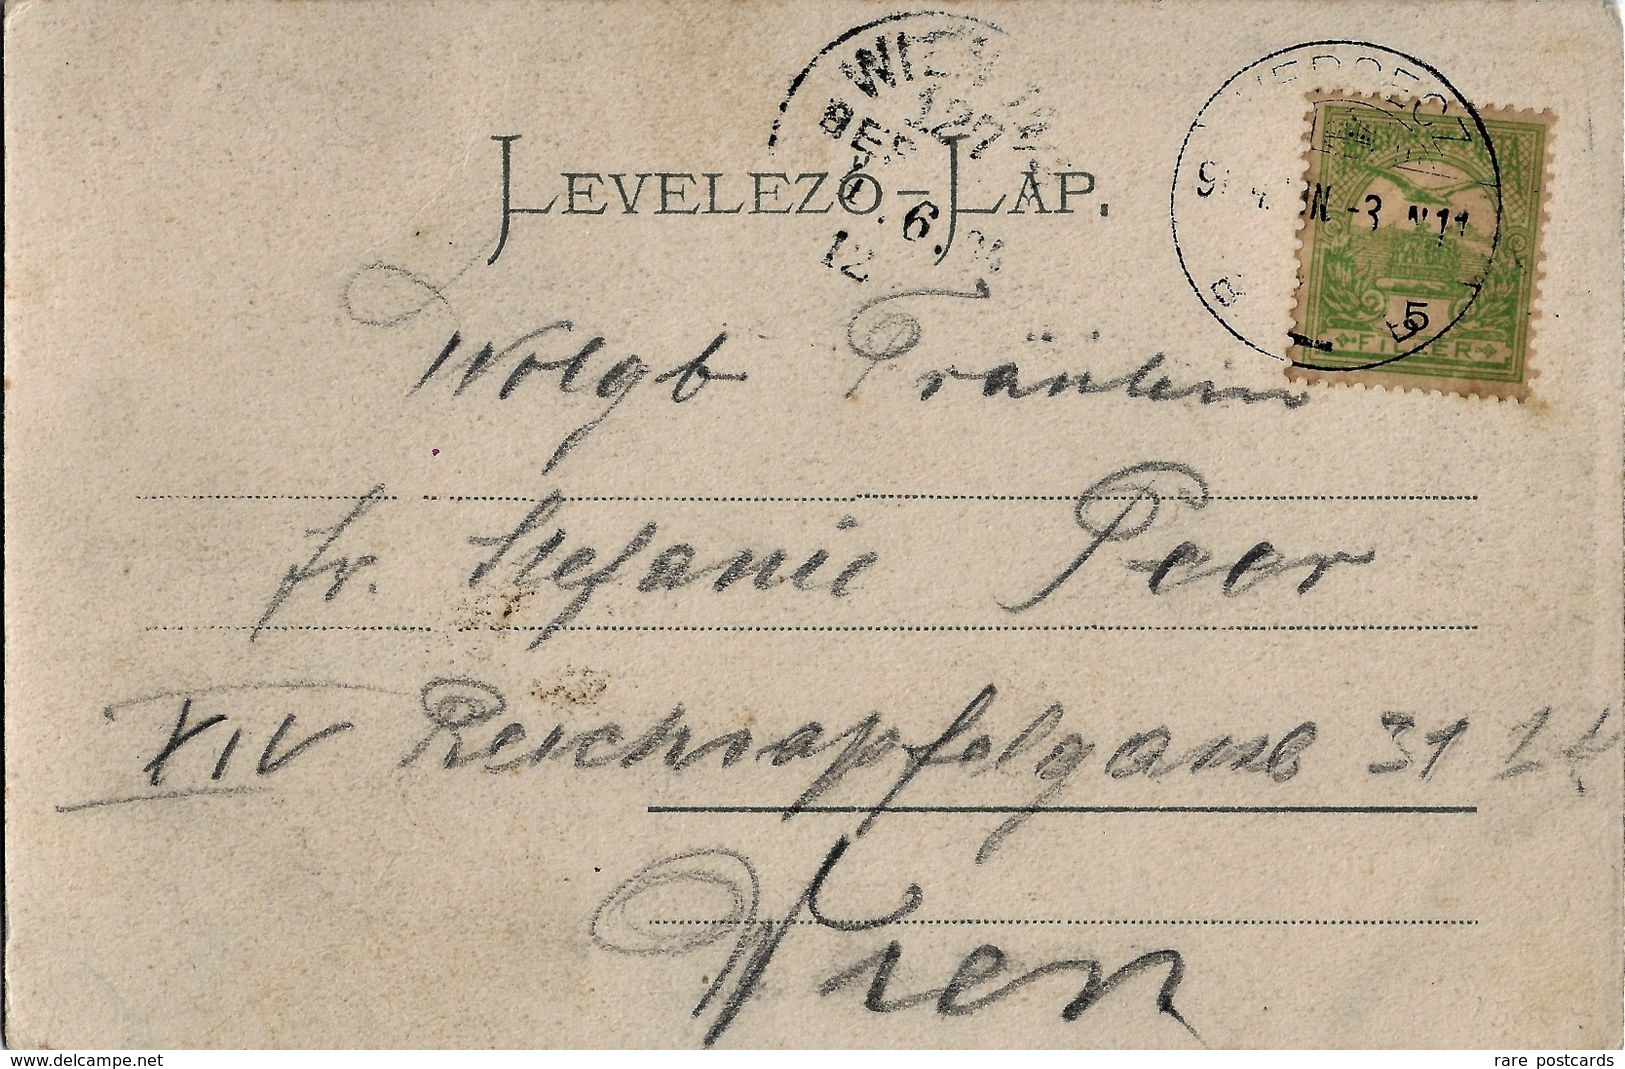 LEVELEZŐ-LAP.
WIEN
127
BES
6.
12
-3
5
FILLÉR
Wolgb Fräulein
Fr. Stefanie Peer
XIV Reichsapfelgasse 31
Wien
delcampe.net
rare postcards